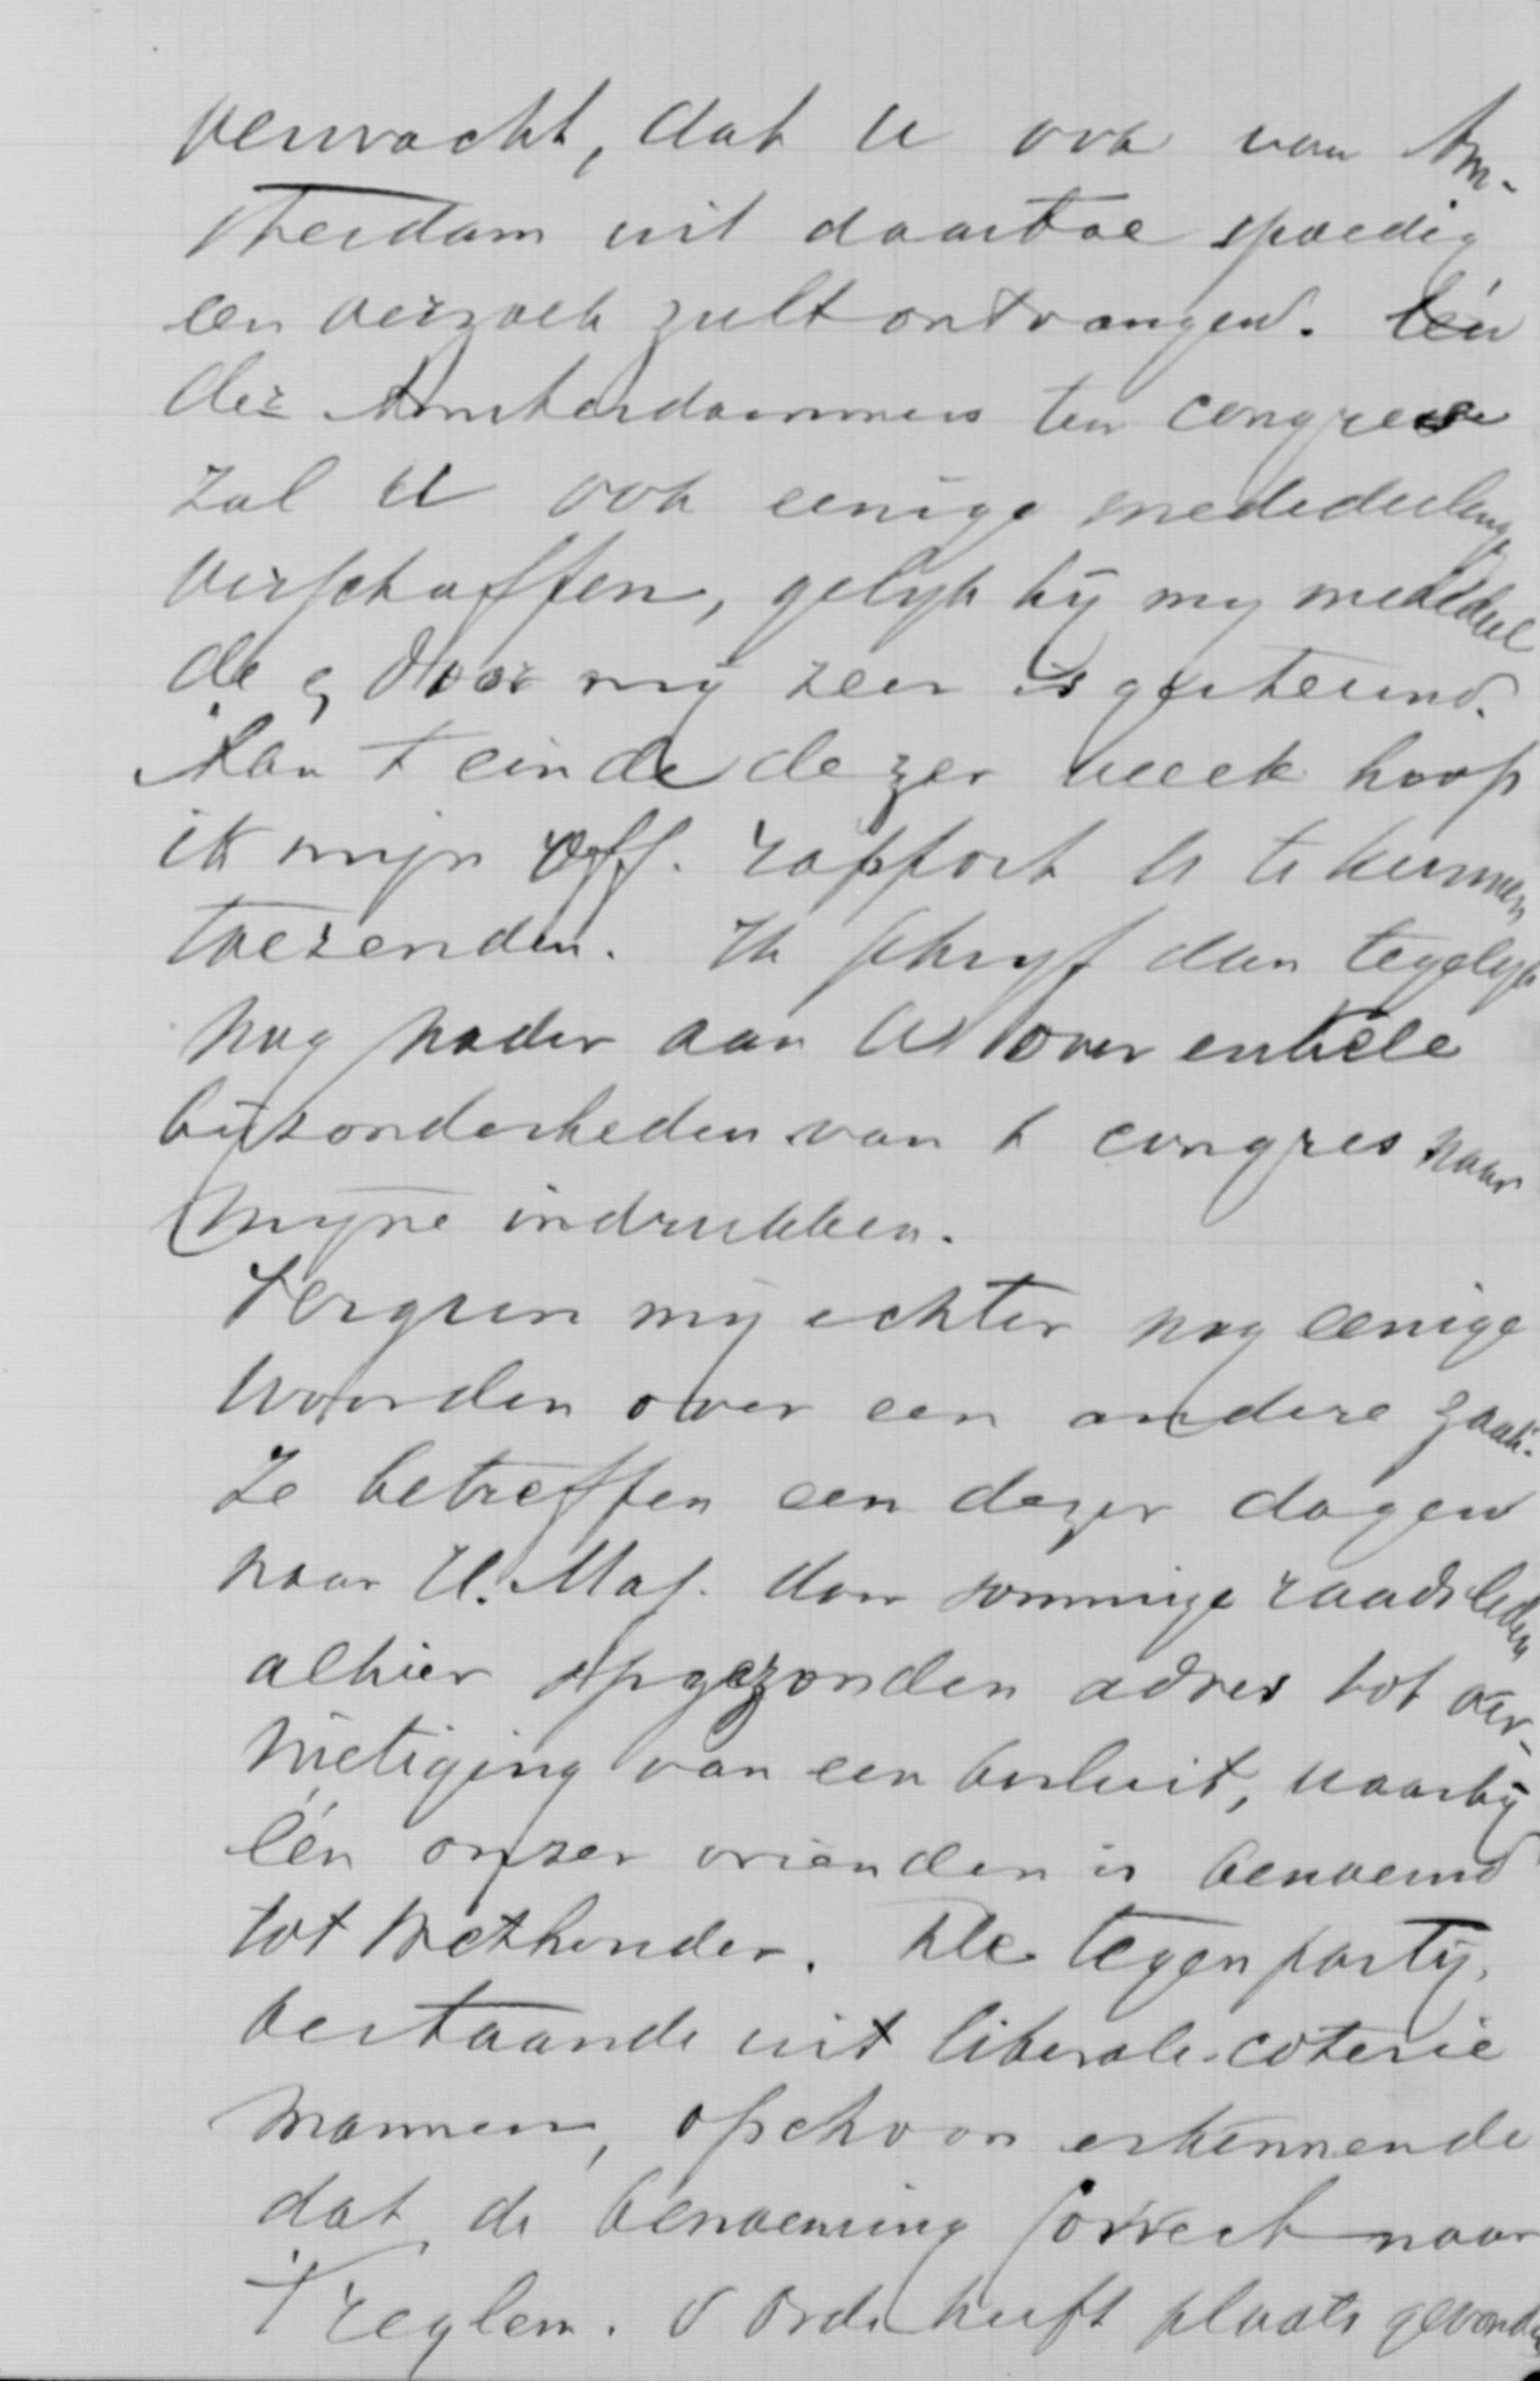 verwacht, dat U ook van Am-
sterdam uit daartoe spoedig
een verzoek zult ontvangen. Eén
der Amsterdammers ten congresse
zal U ook eenige mededeeling
verschaffen, gelijk hij mij mededeel
de & door mij zeer is gesteund.
Aan 't einde dezer week hoop
ik mijn off. rapport U te kunnen
toezenden. Ik schrijf dan tegelijk
nog nader aan U over enkele
bijzonderheden van 't congres naar
mijne indrukken.
Vergun mij echter nog eenige
woorden over een andere zaak.
Ze betreffen een dezer dagen
naar H. Maj. door sommige raadsleden
alhier opgezonden adres tot ver-
nietiging van een besluit, waarbij
één onzer vrienden is benoemd
tot wethouder. De tegenpartij,
bestaande uit liberale-coterie
mannen, ofschoon erkennende
dat de benoeming correct naar
't reglem. v orde heeft plaats gevonden